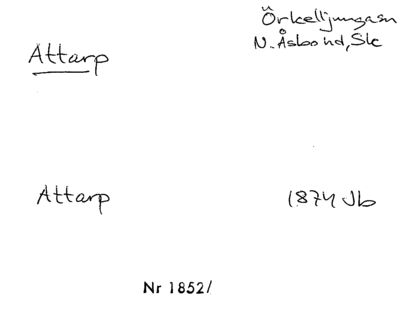 Örkelljungasn
Attarp
N. Åsbo hd, Sk
Attarp
1874 Jb
Nr 1852/